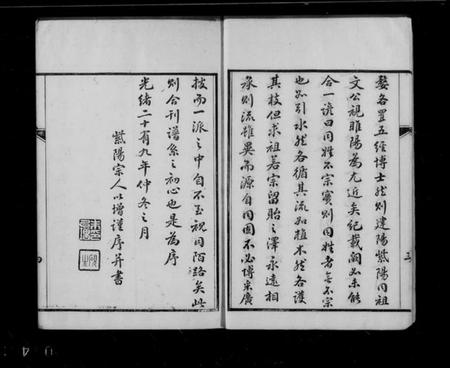 婺各置五經博士然則建陽紫陽同祖
文公視睢陽為尤近矣紀載闕如未能
合一諺曰同姓不宗實則同姓者無不宗
也如引水然各循其流如植木然各護
其枝但求祖若宗留貽之澤永遠相
承則流雖異而源自同固不必博采廣
三
拔而一派之中自不至視同陌路矣此
則合刊譜系之初心也是為序
光緒二十有九年仲冬之月
紫陽宗人以增謹序并書
0 4